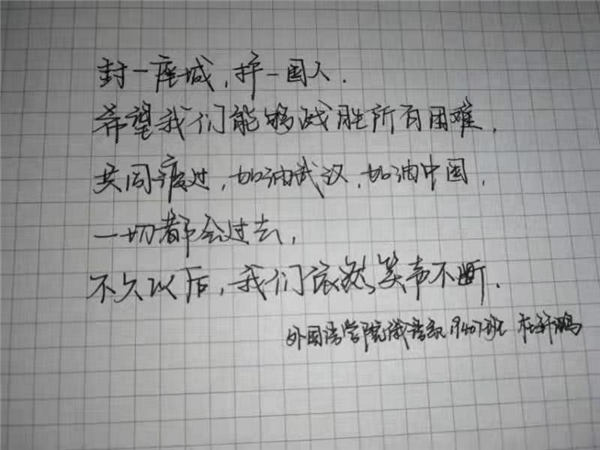 封一座城，护一国人.
希望我们能够战胜所有困难，
共同度过，加油武汉，加油中国，
一切都会过去，
不久以后，我们依然笑声不断.
外国语学院俄语系19407班 杜新鹏